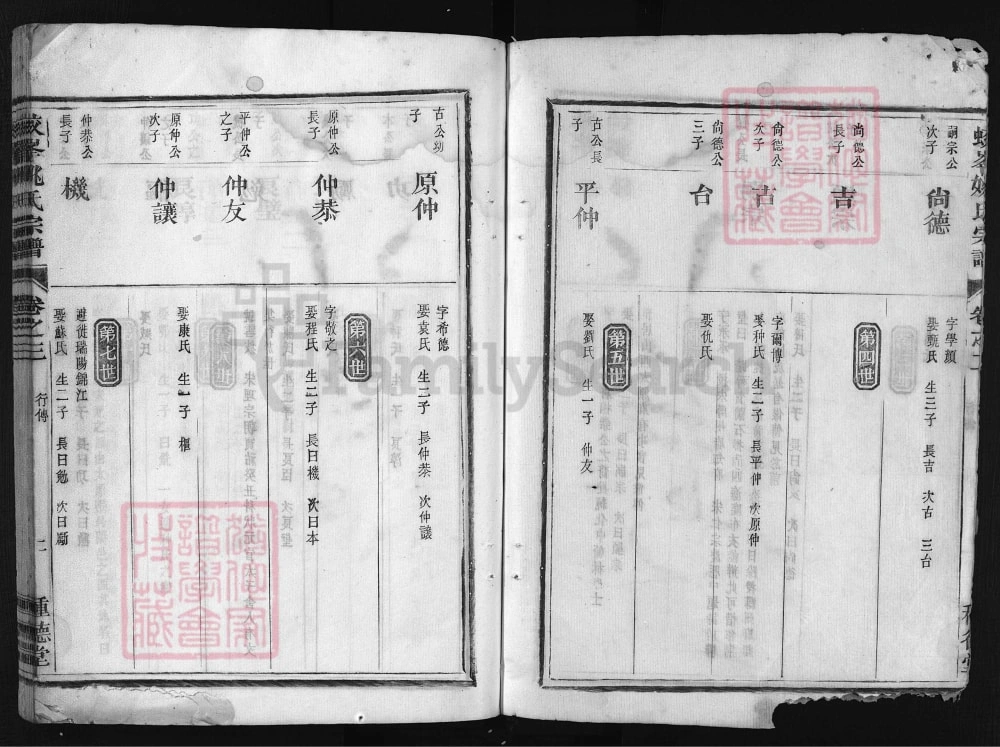 嗣宗公
次子
尚德
字學顏
娶甄氏 生三子 長吉 次古 三台
第四世
尚德公
長子
吉
尚德公
次子
古
字爾博
娶种氏 生二子 長平仲 次原仲
尚德公
三子
台
娶仇氏
第五世
古公長
子
平仲
娶劉氏 生一子 仲友
古公幼
子
原仲
字希德
娶袁氏 生二子 長仲恭 次仲讓
第六世
原仲公
長子
仲恭
字敬之
娶程氏 生二子 長曰機 次曰本
平仲公
之子
仲友
原仲公
次子
仲讓
娶康氏 生一子 樞
第七世
仲恭公
長子
機
避徙瑞陽錦江
娶蘇氏 生二子 長曰勉 次曰勵
姚氏宗譜
卷之二
行傳
二
種德堂
FamilySearch